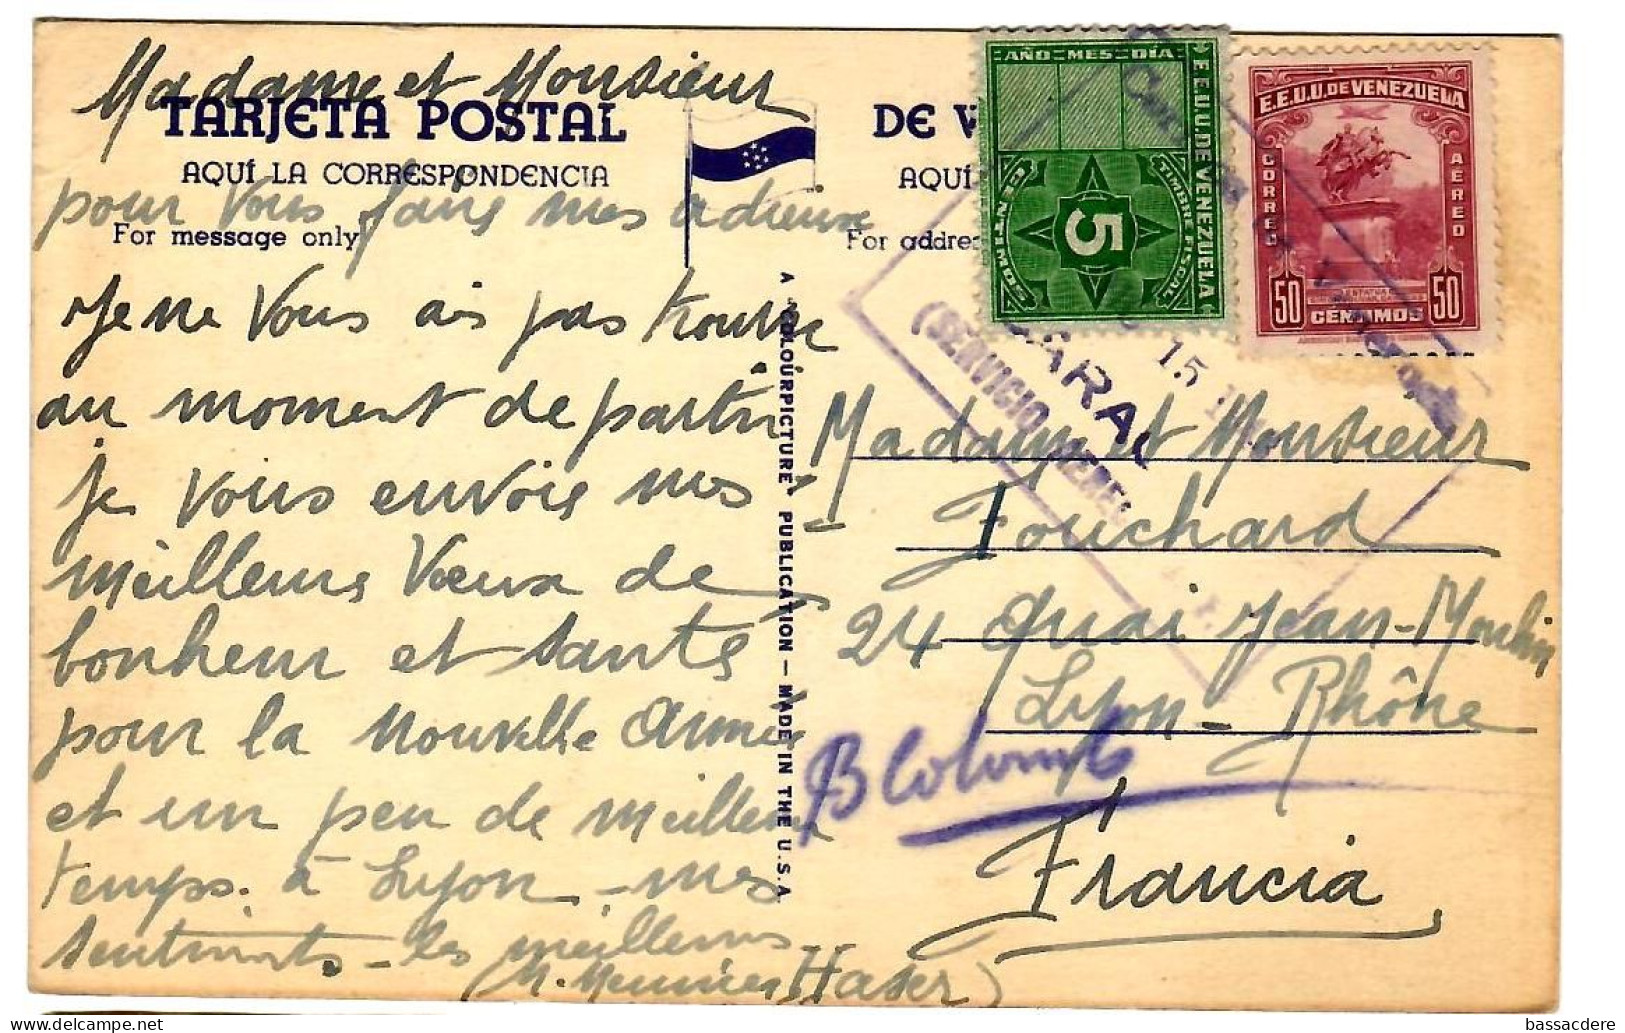 Madame et Monsieur
TARJETA POSTAL
AQUÍ LA CORRESPONDENCIA
For message only
pour vous faire mes adieux
Je ne vous ais pas trouvé
au moment de partir
je vous envoie mes
meilleurs Vœux de
bonheur et santé
pour la nouvelle année
et un peu de meilleur
temps à Lyon - mes
sentiments - les meilleurs
A "COLOURPICTURE" PUBLICATION — MADE IN THE U.S.A.
DE V
AQUÍ
For addre
AÑO MES DÍA
E.E.U.U. DE VENEZUELA
TIMBRE FISCAL
5
CENTIMOS
E.E.U.U. DE VENEZUELA
CORREO
AEREO
50
50
CÉNTIMOS
(SERVICIO AEREO
15
Madame et Monsieur
Fouchard
24 Quai Jean-Moulin
Lyon - Rhône
B Colomb
Francia
bassacdere